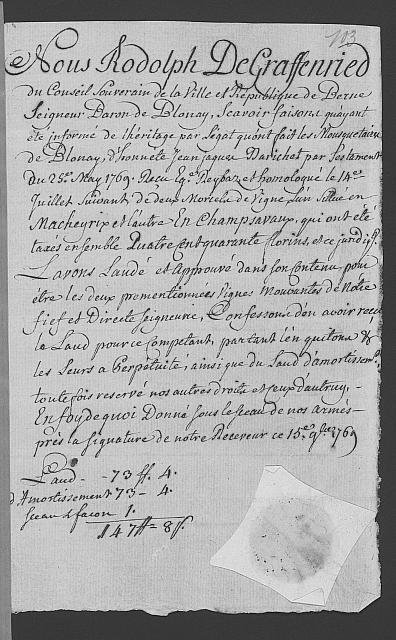 103
Nous Rodolph DeGraffenried
du Conseil Souverain de la Ville et République de Berne
Seigneur Baron de Blonay, Scavoir faisons quayant
été informé de l'héritage par Légat quont fait les Mousquetaires
de Blonay, d'honnête Jean Jaques par Testament
du 25e May 1769. Recu Eg.e Reybaz, et homologué le 14e
Juillet Suivant de deux Morcels de Vigne l'un Situé en
Macheyrix et l'autre En Champsavaux, qui ont été
taxés ensemble Quatre Cent quarante florins, et ce juridiqt.
L'avons Laudé et Approuvé dans son Contenu, pour
être les deux prementionnées Vignes Mouvantes de Notre
fief et Directe Seigneurie, Confessons d'en avoir recu
le Laud pour ce Competant, partant l'en quitons &
les Leurs a Perpétuité, ainsi que du Laud d'amortissemt.
toute fois reservé nos autres droits et ceux d'autruy. -
En foy de quoi Donné Sous le sceau de nos Armes
près la Signature de notre Receveur ce 15.e 9bre 1769
Laud - - 73 ff. 4.
d'Amortissement 73 - 4.
Sceau & facon 1.
147 ff = 8 s.